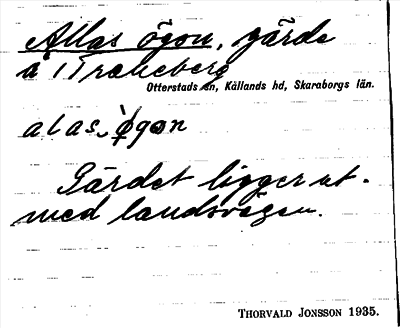 Allas ögon, gärde
å Traneberg
Otterstads sn, Kållands hd, Skaraborgs län.
alas ǿgon
Gärdet ligger ut-
med landsvägen.
THORVALD JONSSON 1935.